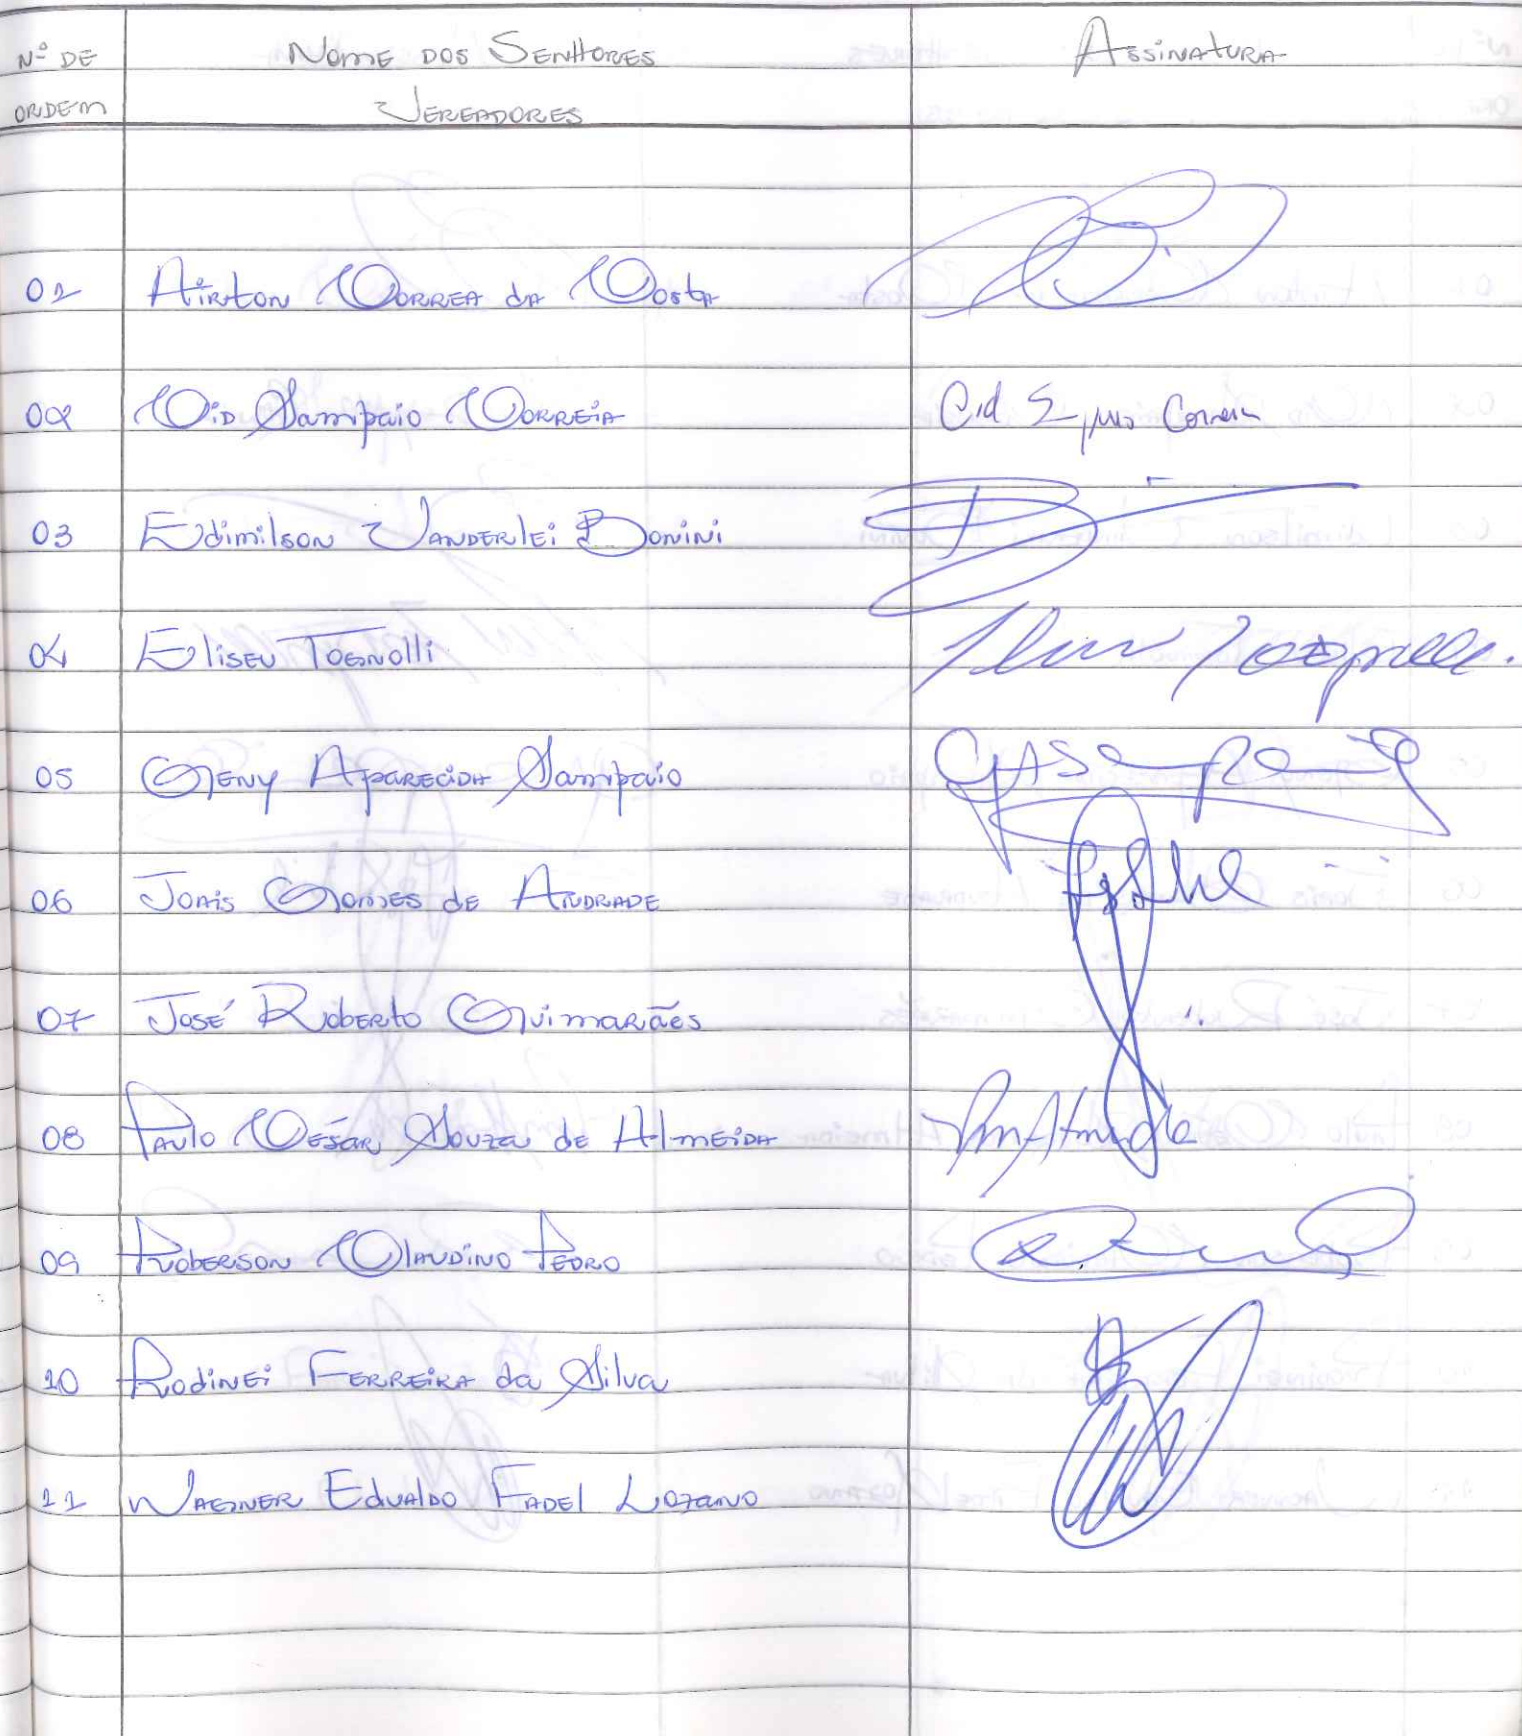 Nº DE
ORDEM
NOME DOS SENHORES
VEREADORES
ASSINATURA
01 AIRTON CORREA DA COSTA
02 CID SAMPAIO CORREIA Cid Correia
03 EDIMILSON VANDERLEI BONINI
04 ELISEU TOGNOLLI
05 GENY APARECIDA SAMPAIO
06 JONIS GOMES DE ANDRADE
07 JOSÉ ROBERTO GUIMARÃES
08 PAULO CÉSAR SOUZA DE ALMEIDA
09 ROBERSON CLAUDINO PEDRO
10 RODINEI FERREIRA DA SILVA
11 WAGNER EDUALDO FADEL LOZANO